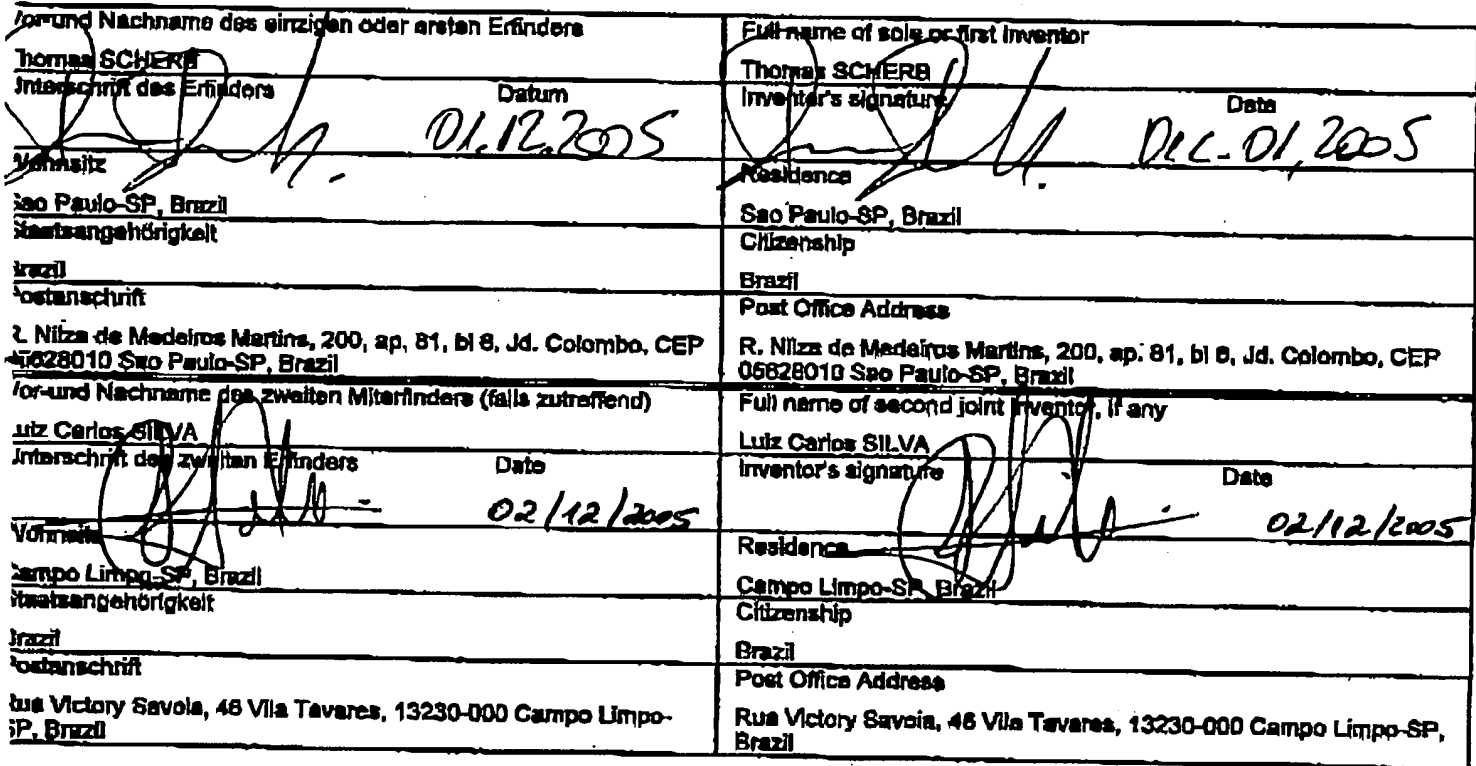 Vor-und Nachname des einzigen oder ersten Erfinders
Thomas SCHERB
Unterschrift des Erfinders Datum
01.12.2005
Wohnsitz
Sao Paulo-SP, Brazil
Staatsangehörigkeit
Brazil
Postanschrift
R. Nilza de Medeiros Martins, 200, ap. 81, bl 8, Jd. Colombo, CEP
05628010 Sao Paulo-SP, Brazil
Vor-und Nachname des zweiten Miterfinders (falls zutreffend)
Luiz Carlos SILVA
Unterschrift des zweiten Erfinders Date
02/12/2005
Wohnsitz
Campo Limpo-SP, Brazil
Staatsangehörigkeit
Brazil
Postanschrift
Rua Victory Savoia, 46 Vila Tavares, 13230-000 Campo Limpo-
SP, Brazil
Full name of sole or first inventor
Thomas SCHERB
Inventor's signature Date
Dec. 01, 2005
Residence
Sao Paulo-SP, Brazil
Citizenship
Brazil
Post Office Address
R. Nilza de Medeiros Martins, 200, ap. 81, bl 8, Jd. Colombo, CEP
05628010 Sao Paulo-SP, Brazil
Full name of second joint inventor, if any
Luiz Carlos SILVA
Inventor's signature Date
02/12/2005
Residence
Campo Limpo-SP, Brazil
Citizenship
Brazil
Post Office Address
Rua Victory Savoia, 46 Vila Tavares, 13230-000 Campo Limpo-SP,
Brazil